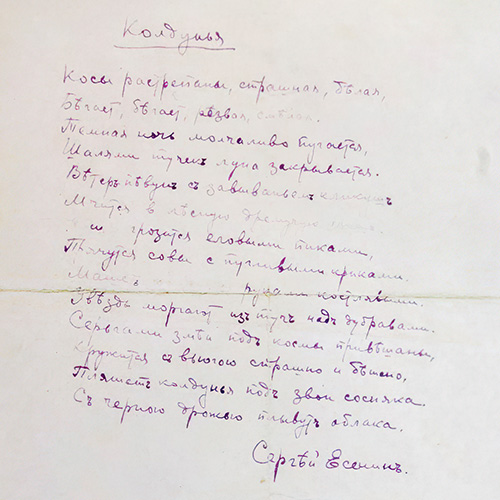 Колдунья
Косы растрепаны, страшная, бѣлая,
Бѣгает, бѣгает, рѣзвая, смѣлая.
Темная ночь молчаливо пугается,
Шалями тучек луна закрывается.
Вѣтеръ пѣвунъ с завываньем кликушъ
Мчится в лѣсную дремучую
грозится еловыми пиками,
Прячутся совы с пугливыми криками.
Машетъ руками костлявыми.
Звѣзды моргают изъ тучъ надъ дубравами.
Серьгами змѣи подъ космы привѣшаны,
Кружится съ вьюгою страшно и бѣшено,
Пляшетъ колдунья подъ звон сосняка.
Съ черною дрожью плывутъ облака.
Сергѣй Есенинъ.